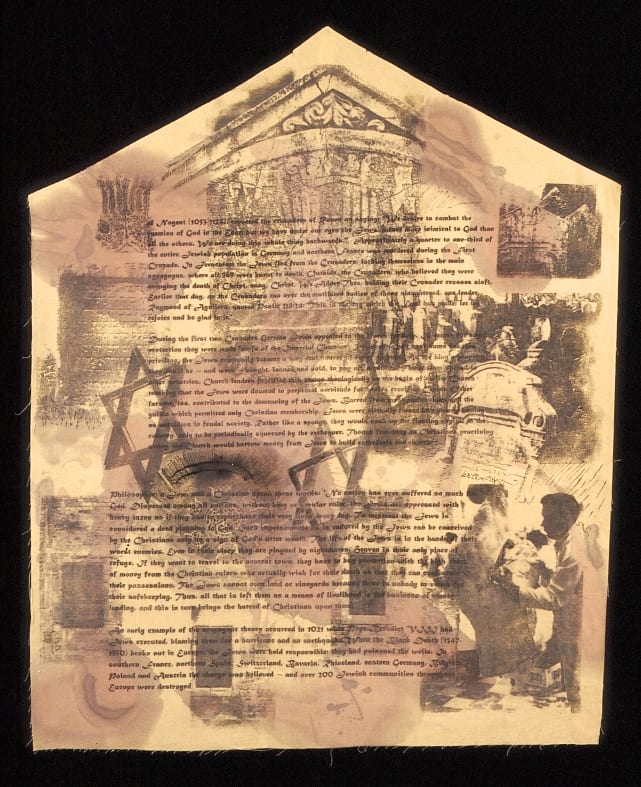 of Nogent (1053-1124) reported the crusaders of Rouen as saying: "We desire to combat the
enemies of God in the East; but we have under our eyes the Jews, a race more inimical to God than
all the others. We are doing this whole thing backwards." Approximately a quarter to one-third of
the entire Jewish population in Germany and northern France was murdered during the First
Crusade. In Jerusalem the Jews fled from the Crusaders, locking themselves in the main
synagogue, where all 969 were burnt to death. Outside, the Crusaders, who believed they were
avenging the death of Christ, sang, Christ, We Adore Thee, holding their Crusader crosses aloft.
Earlier that day, the Crusaders ran over the mutilated bodies of those slaughtered. One leader,
Raymond of Aguilers, quoted Psalm 118:24: This is the day which the Lord has made. Let us
rejoice and be glad in it.
During the first two Crusades German Jews appealed to the
protection they were made serfs of the Imperial Chamber.
privilege, the Jews
and were bought, loaned and sold, to pay off
other countries. Church leaders justified this theologically on the basis of
teaching that the Jews were doomed to perpetual servitude for having crucified Christ. Other
factors, too, contributed to the demeaning of the Jews. Barred from
guilds which permitted only Christian membership, Jews were
as outsiders to feudal society. Rather like a sponge, they would soak up the floating capital in the
country only to be periodically squeezed by the exchequer. Though practising
would borrow money from Jews to build cathedrals and churches.
Philosopher, a Jew, and a Christian speak these words: 'No nation has ever suffered so much
God. Dispersed among all nations, without king or secular ruler, the Jews are oppressed with
heavy taxes as if they had to repurchase their very lives every day. To mistreat the Jews is
considered a deed pleasing to God. Such imprisonment as is endured by the Jews can be conceived
by the Christians only as a sign of God's utter wrath. The life of the Jews is in the hands of their
worst enemies. Even in their sleep they are plagued by nightmares. Heaven is their only place of
refuge. If they want to travel to the nearest town, they have to buy protection with the high sums
of money from the Christian rulers who actually wish for their death so that they can
their possessions. The Jews cannot own land or vineyards because there is nobody to vouch for
their safekeeping. Thus, all that is left them as a means of livelihood is the business of money-
lending, and this in turn brings the hatred of Christians upon them.'
An early example of the scapegoat theory occurred in 1021 when Pope Benedict VIII had
Jews executed, blaming them for a hurricane and an earthquake. When the Black Death (1347-
1350) broke out in Europe, the Jews were held responsible: they had poisoned the wells. In
southern France, northern Spain, Switzerland, Bavaria, Rhineland, eastern Germany, Belgium,
Poland and Austria the charge was believed - and over 200 Jewish communities throughout
Europe were destroyed